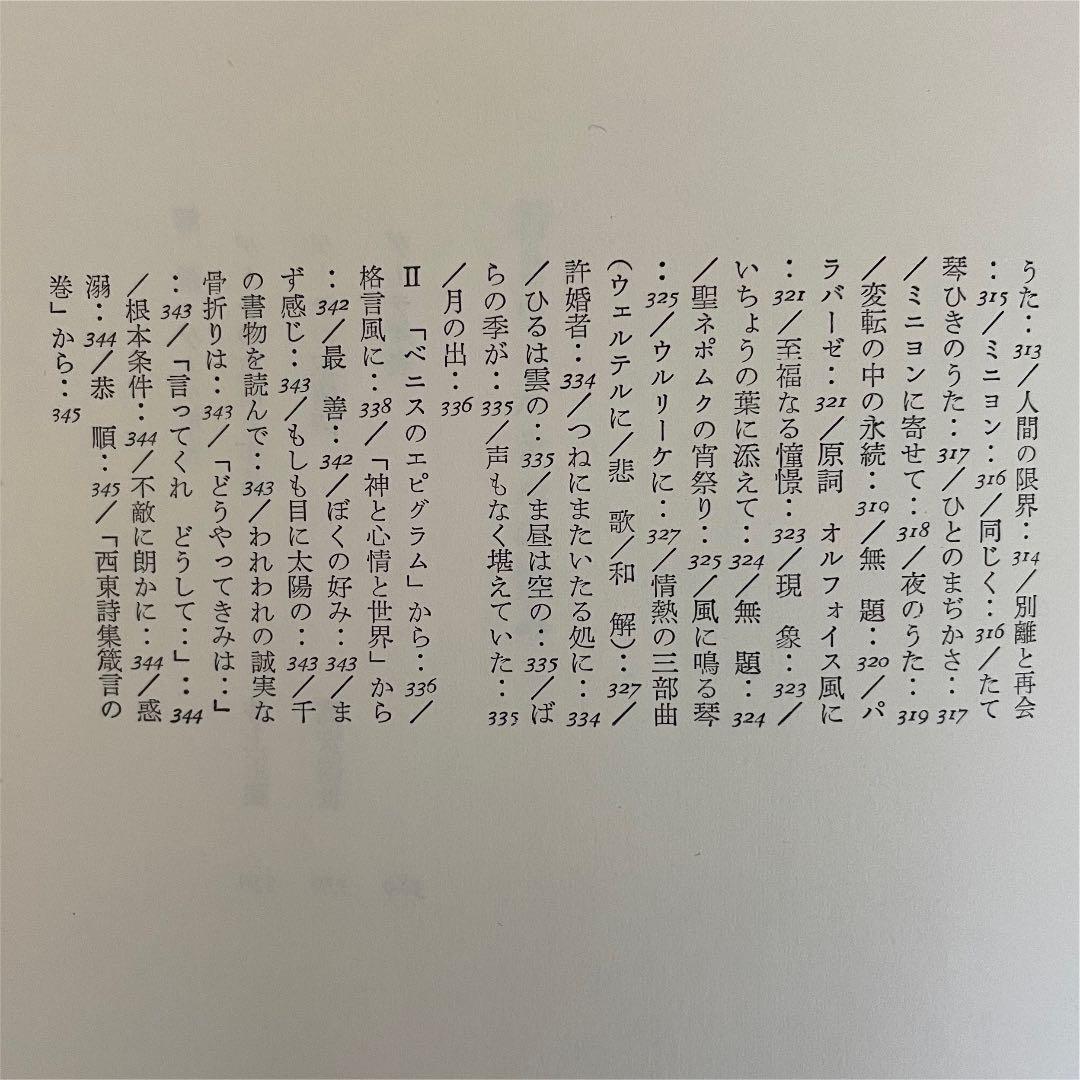 うた‥313/人間の限界‥314/別離と再会
‥315/ミニヨン‥316/同じく‥316/たて
琴ひきのうた‥317/ひとのまぢかさ‥317
/ミニヨンに寄せて‥318/夜のうた‥319
/変転の中の永続‥319/無 題‥320/パ
ラバーゼ‥321/原詞 オルフォイス風に
‥321/至福なる憧憬‥323/現 象‥323/
いちょうの葉に添えて‥324/無 題‥324
/聖ネポムクの宵祭り‥325/風に鳴る琴
‥325/ウルリーケに‥327/情熱の三部曲
(ウェルテルに/悲 歌/和 解)‥327/
許婚者‥334/つねにまたいたる処に‥334
/ひるは雲の‥335/ま昼は空の‥335/ば
らの季が‥335/声もなく堪えていた‥335
/月の出‥336
Ⅱ 「ベニスのエピグラム」から‥336/
格言風に‥338/「神と心情と世界」から
‥342/最 善‥342/ぼくの好み‥343/ま
ず感じ‥343/もしも目に太陽の‥343/千
の書物を読んで‥343/われわれの誠実な
骨折りは‥343/「どうやってきみは‥」
‥343/「言ってくれ どうして‥」‥344
/根本条件‥344/不敵に朗かに‥344/惑
溺‥344/恭 順‥345/「西東詩集箴言の
巻」から‥345